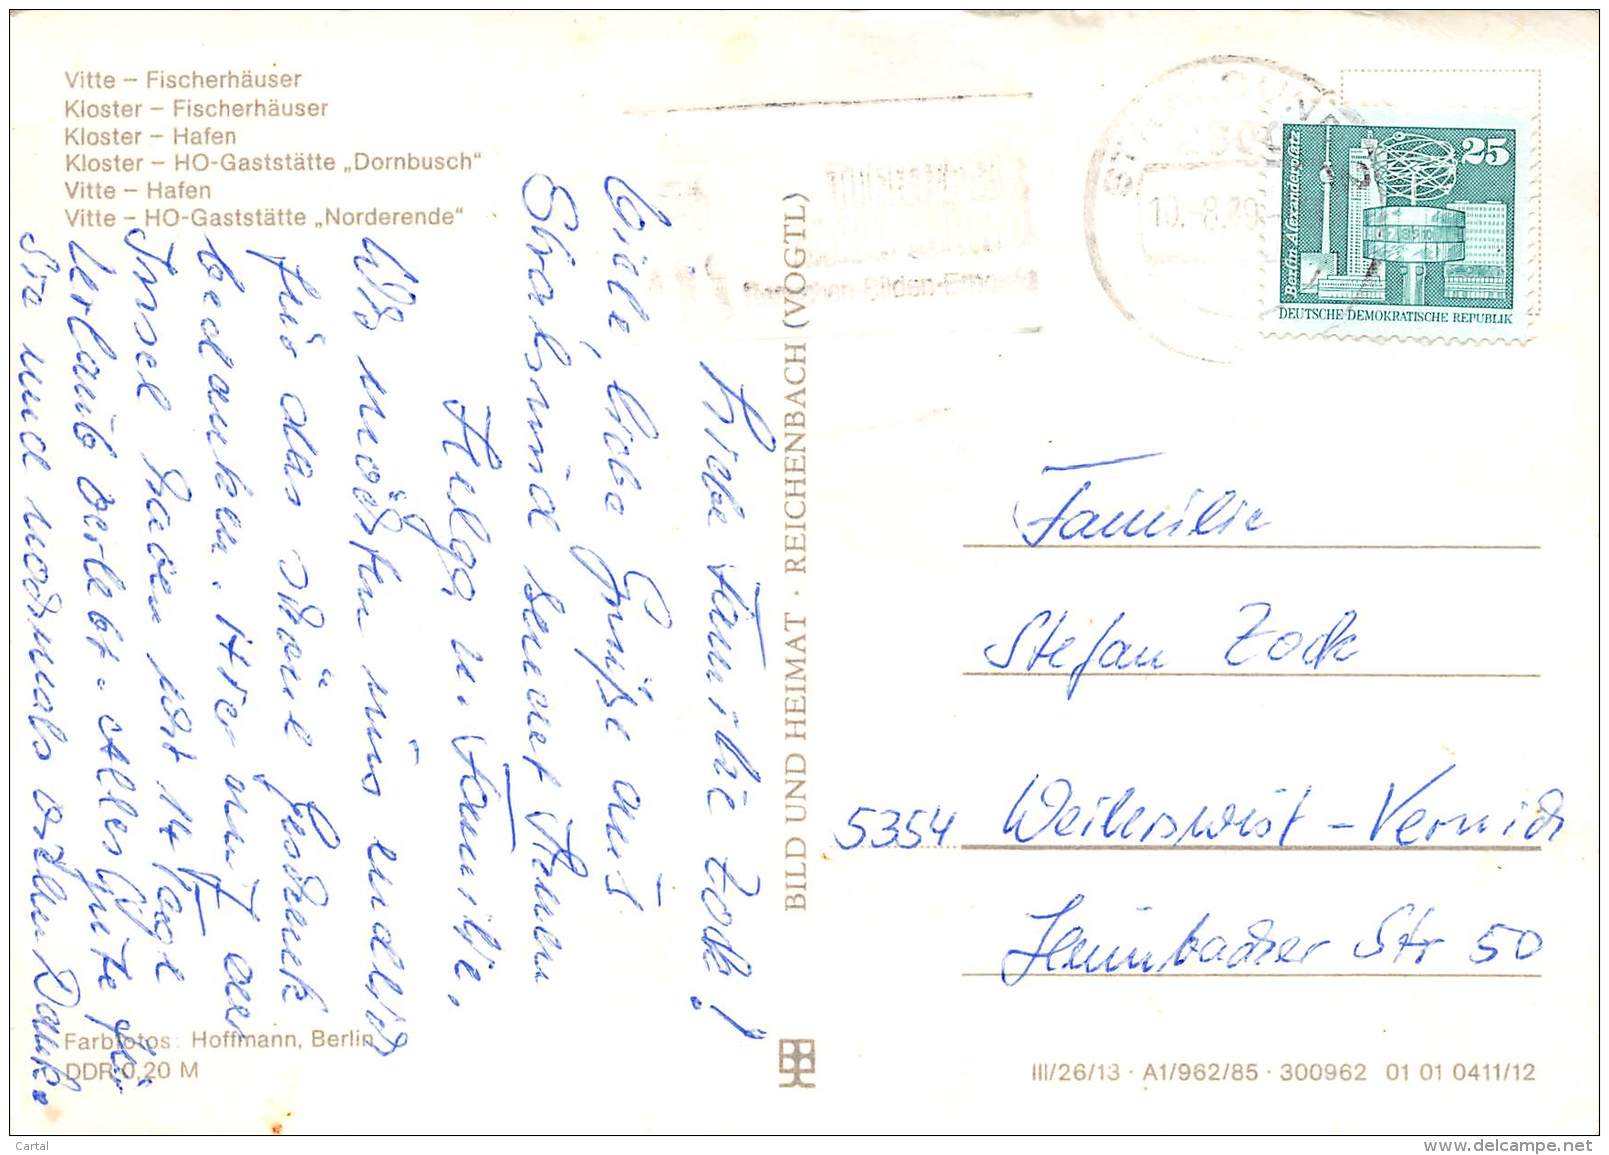 Vitte – Fischerhäuser
Kloster – Fischerhäuser
Kloster – Hafen
Kloster – HO-Gaststätte „Dornbusch"
Vitte – Hafen
Vitte – HO-Gaststätte „Norderende"
Liebe Familie Zock!
Viele, liebe Grüße aus
Stralsund sendet Ihnen
Helga u. Familie.
Wir möchten uns endlich
für das schöne Geschenk
bedanken. Hier auf der
Insel haben wir 14 Tage
Urlaub verlebt. Alles Gute für
Sie und nochmals vielen Dank.
Farbfotos: Hoffmann, Berlin
DDR 0,20 M
BILD UND HEIMAT · REICHENBACH (VOGTL)
10.-8.89
25
Berlin-Alexanderplatz
DEUTSCHE DEMOKRATISCHE REPUBLIK
Familie
Stefan Zock
5354 Weilerswist-Vernich
Str 50
III/26/13 · A1/962/85 · 300962 01 01 0411/12
Cartal
www.delcampe.net